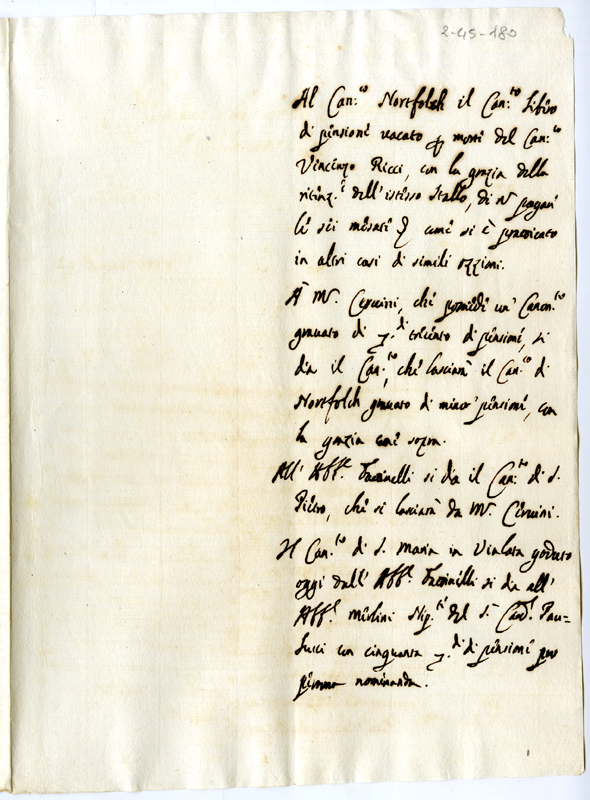 2-45-180
Al Can.to Nortfolch il Can.to libero
di pensioni vacato p morte del Can.co
Vincenzo Ricci, con la grazia della
dell'istesso Stallo, di n pagare
li sei mesati come si è praticato
in altri casi di simili ozzioni.
A M.r Cervini, che possiede un Canon.to
gravato di di trecento di pensione, si
dia il Can.to, che lasciarà il Can.co di
Nortfolch gravato di minor pensione, con
la grazia come sopra.
All' Abb.e si dia il Can.to di S.
Pietro, che si lasciarà da M.r Cervini.
Il Can.to di S. Maria in Vialata goduto
oggi dall' Abb.e si dia all'
Abb.e Merlini Nip.te del S.r Card.l Pau=
lucci con cinquanta di di pensione pro
persona nominanda.